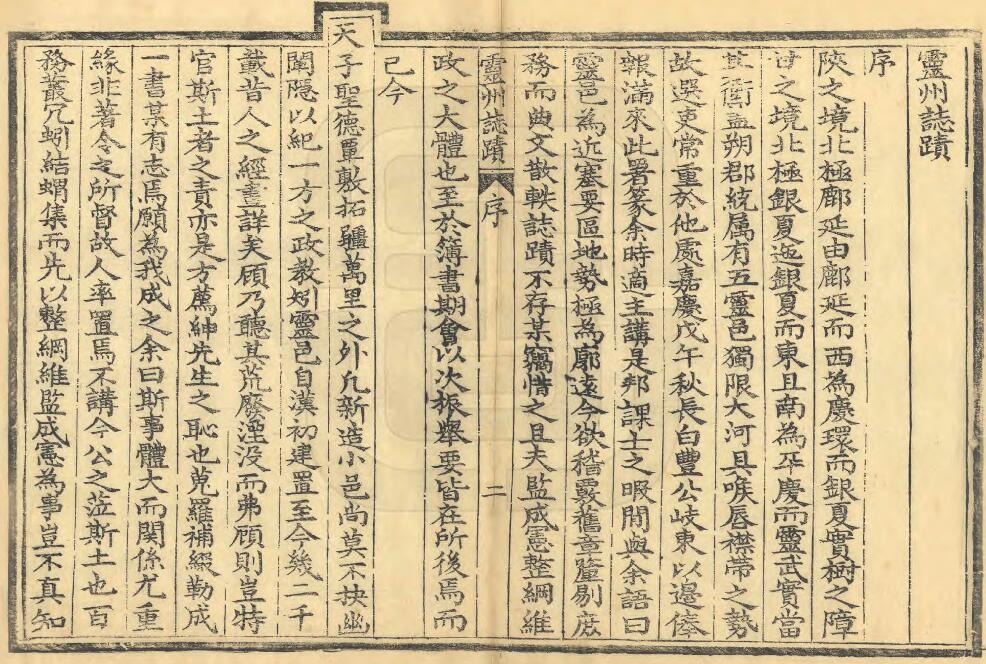 靈州誌蹟
序
陝之境北極鄜延由鄜延而西為慶環而銀夏實樹之障
甘之境北極銀夏迤銀夏而東且南為平慶而靈武實當
其衝葢朔郡統属有五靈邑獨限大河具喉唇襟帶之勢
故選吏常重於他處嘉慶戊午秋長白豐公岐東以邊俸
報滿來此署篆余時適主講是邦課士之暇間與余語曰
靈邑為近塞要區地勢極為廓遠今欲稽覈舊章釐剔庶
務而典文散軼誌蹟不存某竊惜之且夫監成憲整綱維
靈州誌蹟 序 二
政之大體也至於簿書期會以次振舉要皆在所後焉而
已今
天子聖德覃敷拓疆萬里之外凡新造小邑尚莫不抉幽
闡隱以紀一方之政教矧靈邑自漢初建置至今幾二千
載昔人之經畫詳矣顧乃聽其荒廢湮没而弗顧則豈特
官斯土者之責亦是方薦紳先生之恥也蒐羅補綴勒成
一書某有志焉願為我成之余曰斯事體大而關係尤重
緣非著令之所督故人率置焉不講今公之蒞斯土也百
務叢冗蚓結蝟集而先以整綱維監成憲為事豈不真知